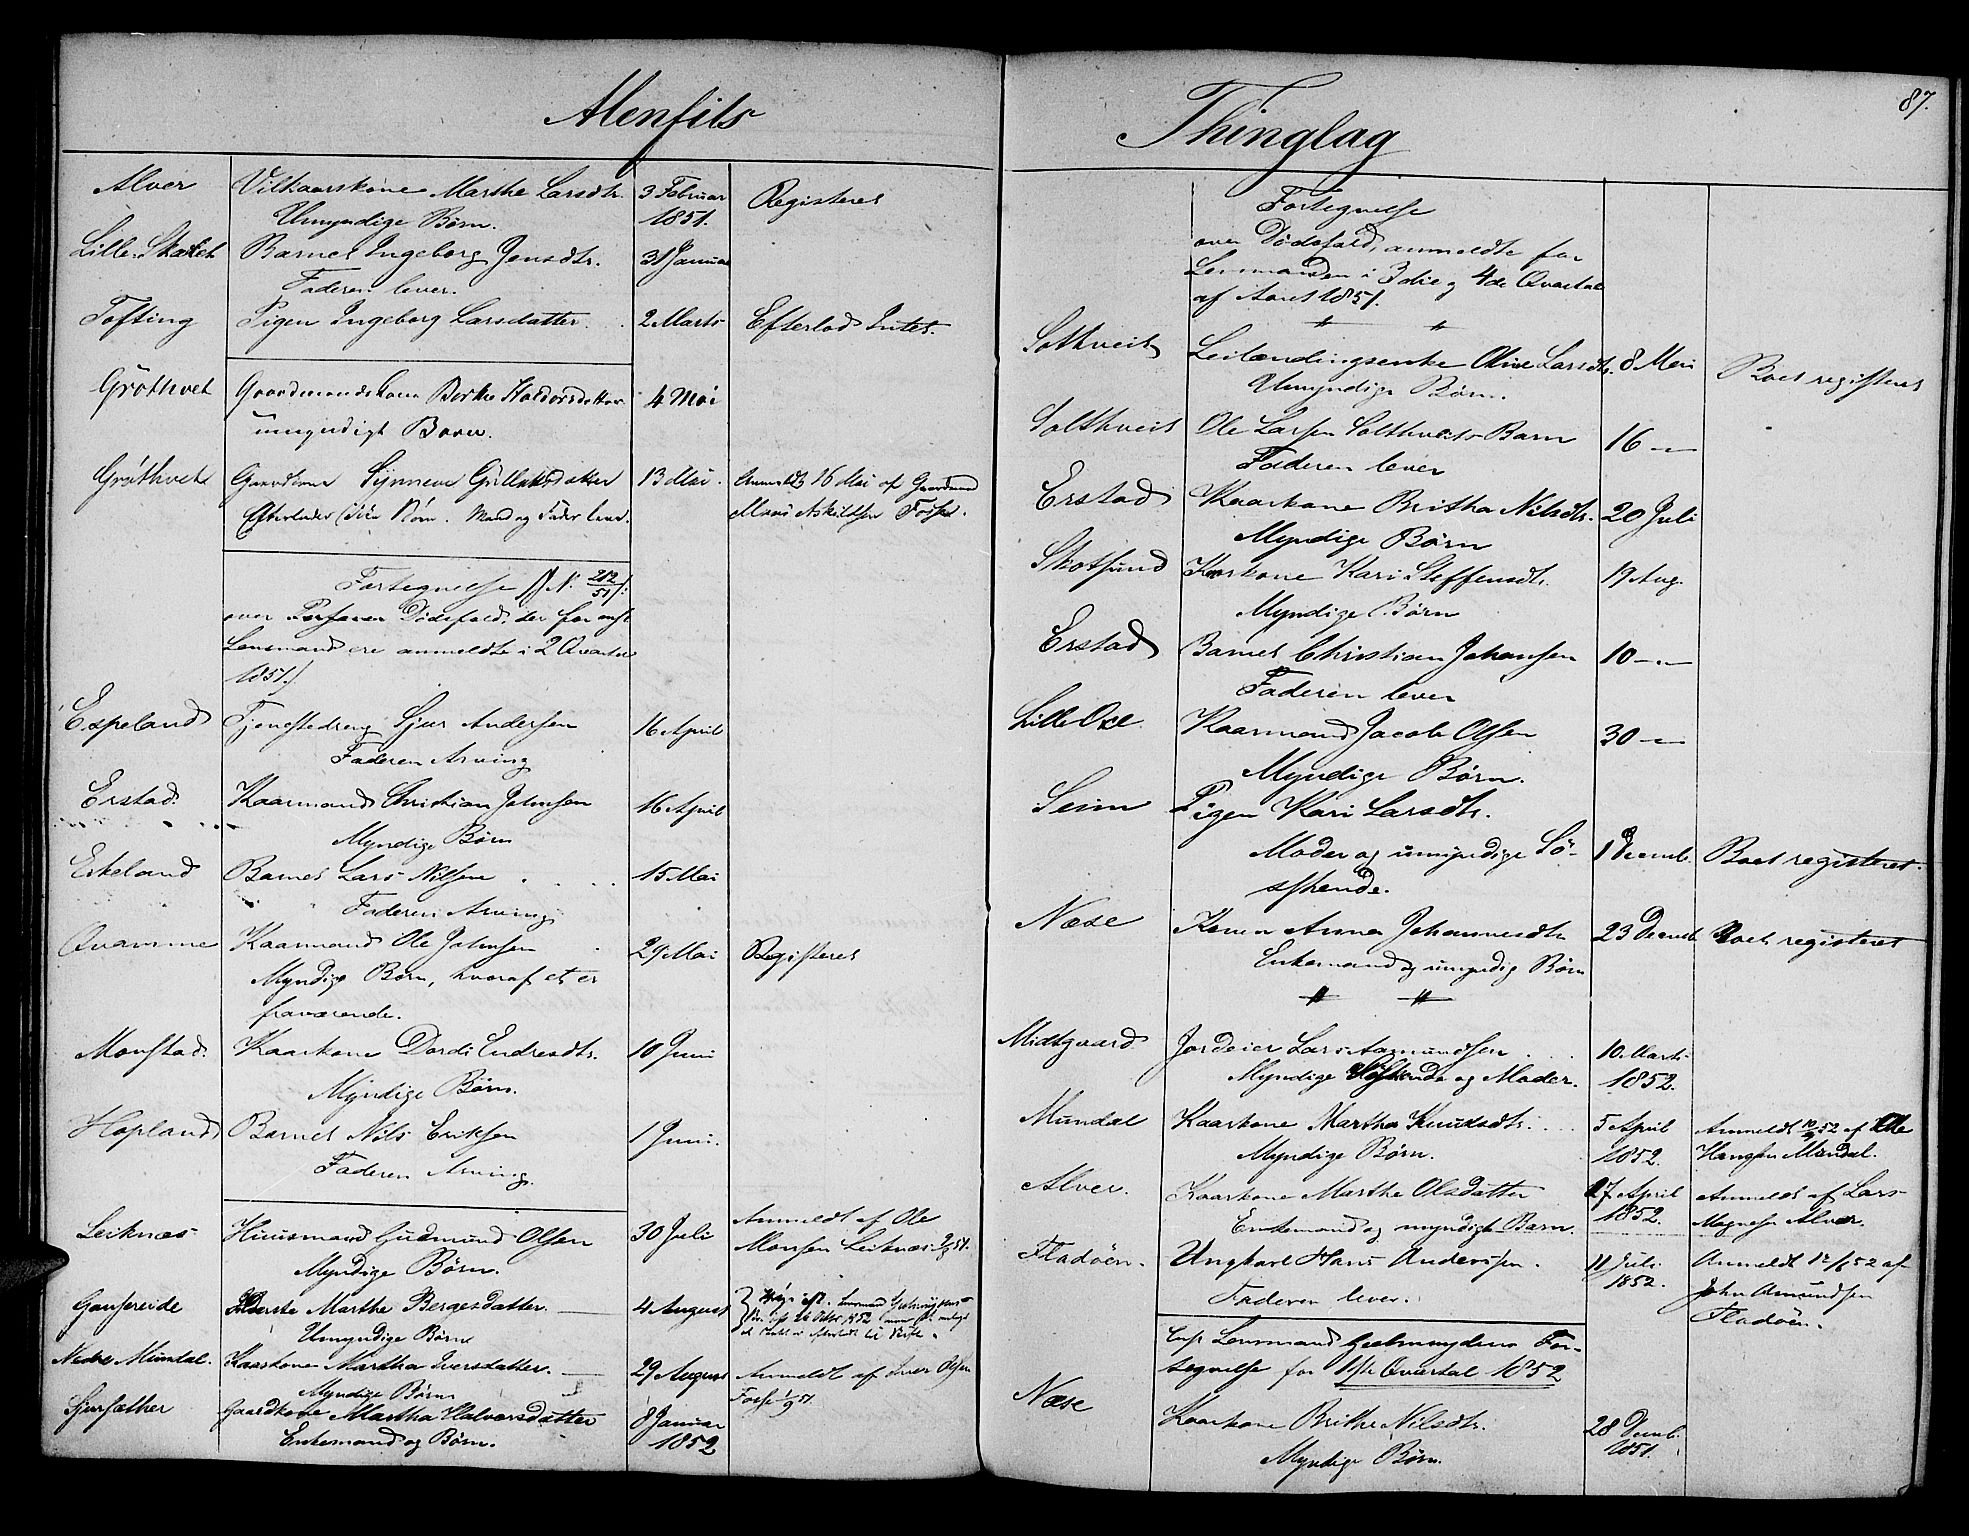 Alenfits
Alver Vilkaarskone Marthe Larsdtr. 3 Februar Registeret
Umyndige Børn. 1851.
Lille Skatelet Barnet Ingeborg Jensdtr. 31 Januar
Faderen lever.
Tofting Pigen Ingeborg Larsdatter 2 Marts Efterlod Intet.
Gröthvet Gaardmandskone Berthe Haldorsdatter 4 Mai
umyndigt Barn.
Gröthvet Gaardkone Synneve Gulleksdatter 13 Mai. Anmeldt 16 Mai af Gaardmand
Efterlader sine Børn. Mand og Fader lever. Mons Askildsen Fosse.
Fortegnelse J N: 212/51
over Dödsfald, der for
Lensmand ere anmeldte i 2 Qvartal
1851.
Espeland Tjenestedreng Sjur Andersen 16 April
Faderen Arving
Erstad. Kaarmand Christian Johnsen 16 April
Myndige Børn
Eskeland Barnet Lars Nilsen 15 Mai
Faderen Arving
Qvamme Kaarmand Ole Johnsen 29 Mai Registeret
Myndige Børn, hvoraf et er
fraværende.
Monstad. Kaarkone Dordi Endresdtr. 10 Juni
Myndige Børn.
Hopland Barnet Nils Eriksen 1 Juni.
Faderen Arving.
Leiknæs Huusmand Gudmund Olsen 30 Juli Anmeldt af Ole
Myndige Børn. Monsen Leiknæs 2/9 51.
Gausereide Marthe Bergesdatter. 4 August
Umyndige Børn
Nedre Mundal. Kaarkone Martha Iversdatter. 29 August Anmeldt af Iver Olsen
Myndige Børn Fosse 1/9 51.
Sjursæther Gaardkone Martha Halvorsdatter 8 Januar
Enkemand og Børn. 1852
Thinglag
87.
Fortegnelse
over Dödsfald, anmeldte for
Lensmanden i 3die og 4de Qvartal
af Aaret 1851.
Solthveit Leilændingsenke Oline Larsdtr. 8 Mai Boet registeret
Umyndige Børn.
Solthveit Ole Larsen Solthveits Barn 16 -"-
Faderen lever
Erstad Kaarkone Britha Nilsdtr. 20 Juli
Myndige Børn
Skotsund Karkone Kari Steffensdtr. 19 Aug.
Myndige Børn
Erstad Barnet Christian Johansen 10 -"-
Faderen lever
Lille Oxe Kaarmand Jacob Olsen 30 -"-
Myndige Børn.
Seim Pigen Kari Larsdtr.
Moder og umyndige Sö- 1 Decemb. Boet registeret.
skende.
Næse Konen Anna Johannesdtr 23 Decemb Boet registeret
Enkemand og umyndig Børn
Midtgaard Jordeier Lars Aamundsen 10. Marts
Myndige Söskende og Moder. 1852.
Mundal Kaarkone Martha Knudsdtr. 5 April Anmeldt 10/9 52 af Ole
Myndige Børn. 1852. Hansen Mundal.
Alver. Kaarkone Marthe Olsdatter 17 April Anmeldt af Lars
Enkemand og myndigt Barn. 1852. Magnesen Alver.
Fladöen. Ungkarl Hans Andersen. 11 Juli Anmeldt 12/8 52 af
Faderen lever. 1852. John Amundsen
Fladöen.
Lensmand Gjelmuydens For-
tegnelse for 1ste Qvartal 1852
Næse
Kaarkone Brithe Nilsdtr. 28 Decemb.
Myndige Børn. 1851.